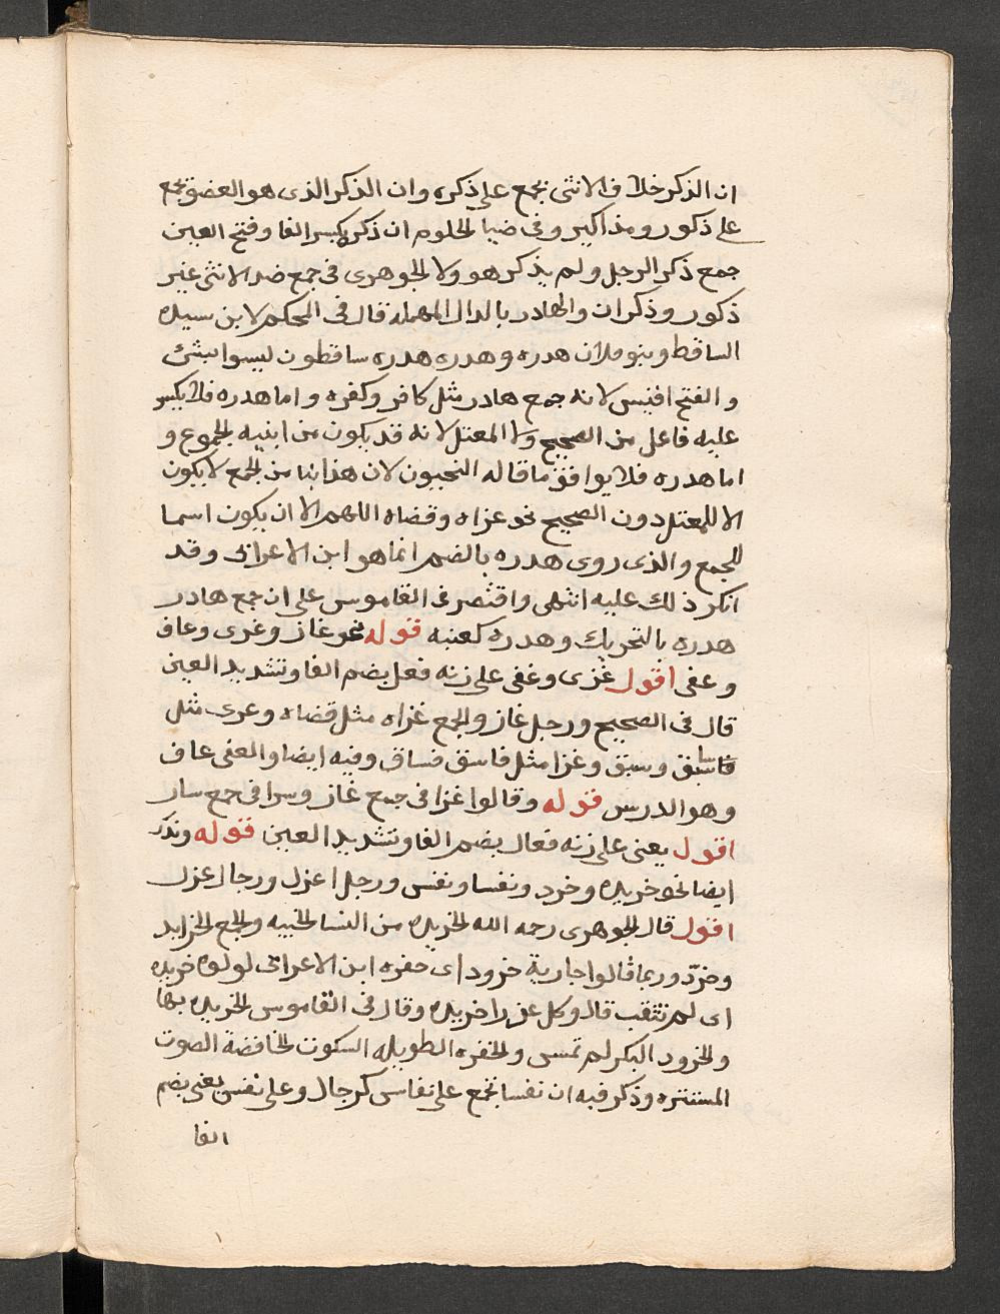 ان الذكر خلاف الانثى يجمع على ذكره وان الذكر الذى هو العضو يجمع
على ذكور ومذاكير وفى ضيا الحلوم ان ذكره بكسر الفا وفتح العين
جمع ذكر الرجل ولم يذكر هو ولا الجوهرى فى جمع ضد الانثى غير
ذكور وذكران والهادر بالدال المهمله قال فى المحكم لابن سيده
الساقط وبنو فلان هدره وهدره هدره ساقطون ليسوا بشئ
والفتح اقيس لانه جمع هادر مثل كافر وكفره واما هدره فلا يكسر
عليه فاعل من الصحيح ولا المعتل لانه قد يكون من ابنيه الجموع و
اما هدره فلا يوافق ما قاله النحويون لان هذا بنا من الجمع لا يكون
الا للمعتل دون الصحيح نحو غزاه وقضاه اللهم الا ان يكون اسما
للجمع والذى روى هدره بالضم انما هو ابن الاعرابى وقد
انكر ذلك عليه انتهى واقتصر فى القاموس على ان جمع هادر
هدره بالتحريك وهدره كعنبه قوله نحو غاز وغزى وعاف
وعفى اقول غزى وعفى على زنه فعل بضم الفا وتشديد العين
قال فى الصحيح ورجل غاز والجمع غزاه مثل قضاه وغزى مثل
سابق وسبق وغزا مثل فاسق فساق وفيه ايضا والعفى عاف
وهو الدرس قوله وقالوا غزا فى جمع غاز وسرا فى جمع سار
اقول يعنى على زنه فعال بضم الفا وتشديد العين قوله ونذر
ايضا نحو خريده وخرد ونفسا ونفس ورجل اعزل ورجال عزل
اقول قال الجوهرى رحمه الله الخريده من النسا الحييه والجمع الخرايد
وخرد وربما قالوا جارية خرود اى خفره ابن الاعرابى لولوه خريده
اى لم تثقب قال وكل عذرا خريده وقال فى القاموس الخريده بها
والخرود البكر لم تمس والخفره الطويله السكوت الخافضة الصوت
المستتره وذكر فيه ان نفسا تجمع على نفاس كرجال وعلى نفس يعنى بضم
الفا